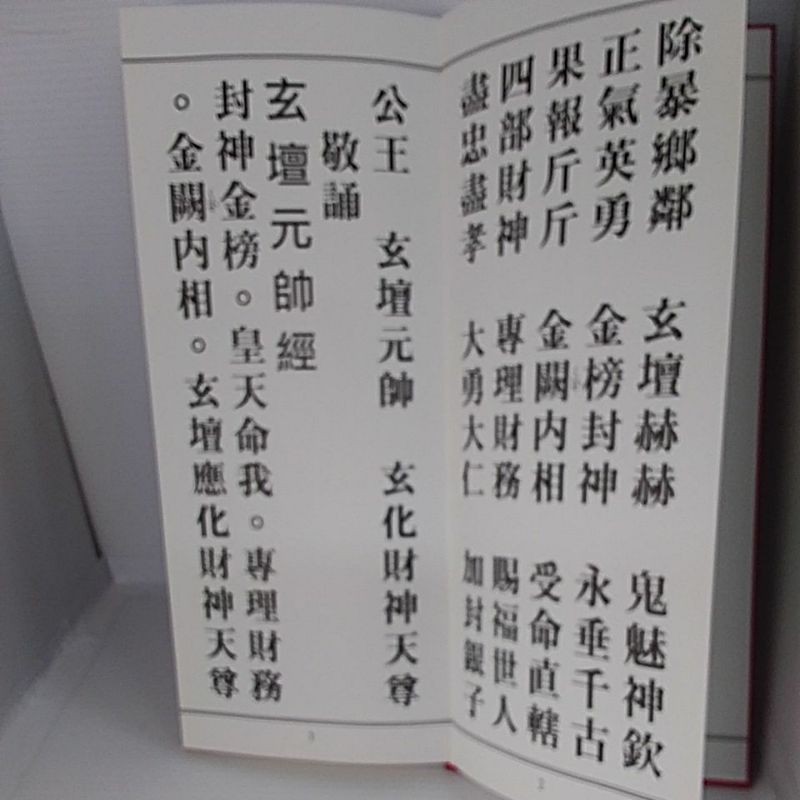 除暴鄉鄰 玄壇赫赫 鬼魅神欽
正氣英勇 金榜封神 永垂千古
果報斤斤 金闕內相 受命直轄
四部財神 專理財務 賜福世人
盡忠盡孝 大勇大仁 加封銀子
2
公王 玄壇元帥 玄化財神天尊
敬誦
玄壇元帥經
封神金榜。皇天命我。專理財務
。金闕內相。玄壇應化財神天尊
3